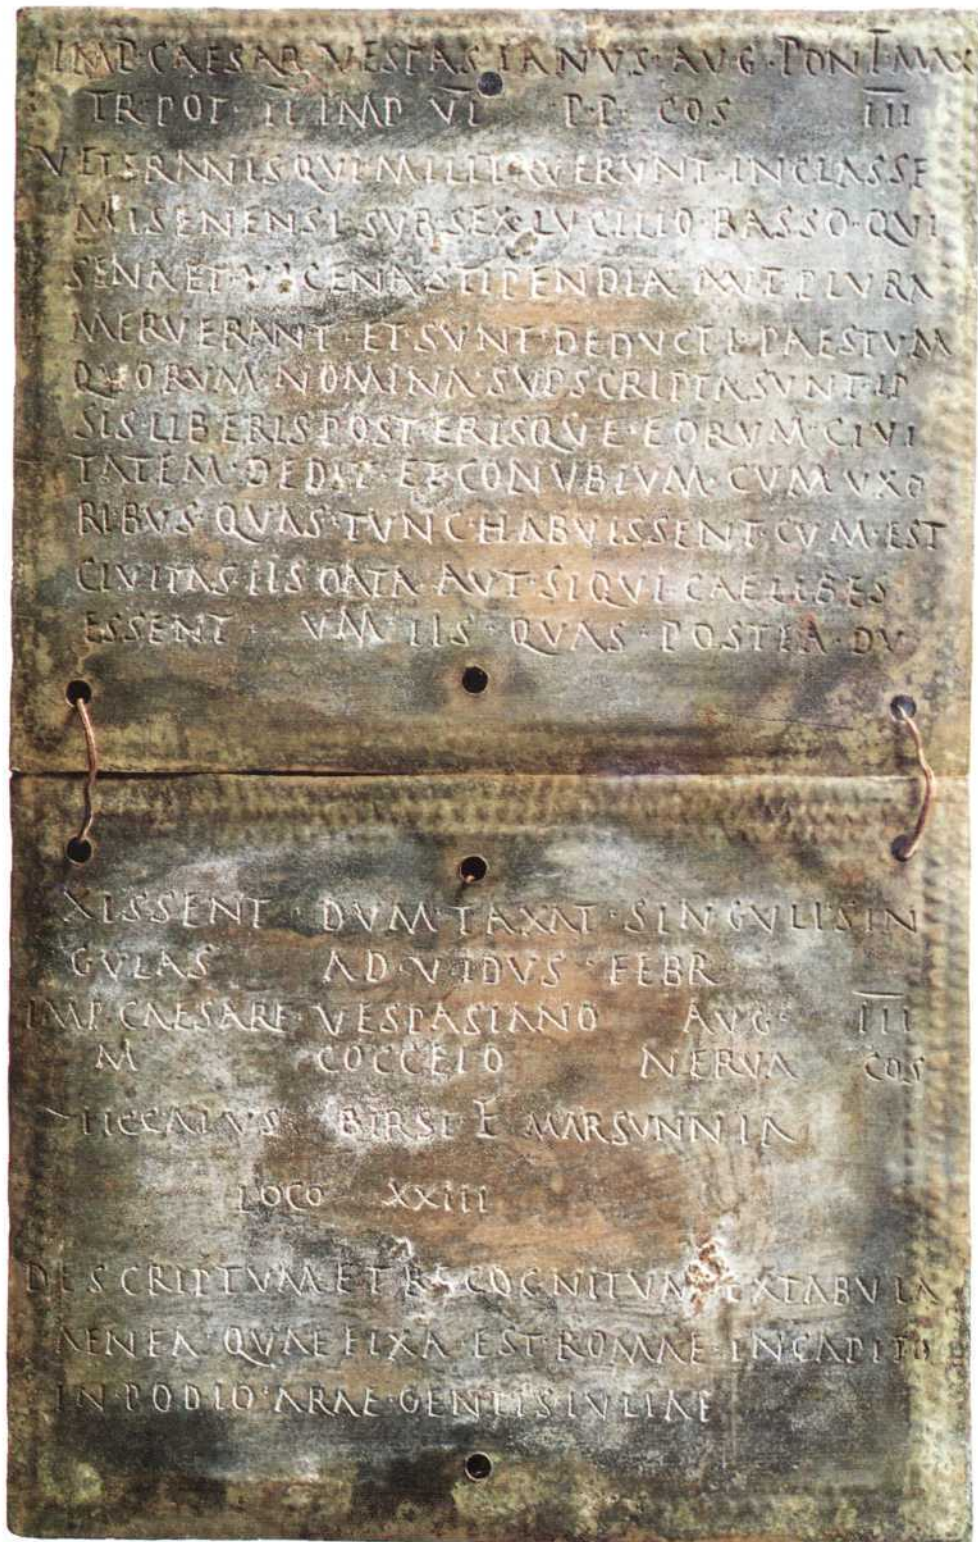 IMP·CAESAR·VESPASIANVS·AUG·PONT·MAX
TR·POT·II·IMP VI P·P· COS III
VETERANIS·QUI·MILITAVERVNT·INCLASSE
MISENENSI·SVB·SEX·LVCILIO·BASSO·QVI
SENAET·VICENASTIPENDIA·AUT·PLVRA
MERVERANT·ETSVNT·DEDVCTI·PAESTVM
QVORVM·NOMINA·SVPSCRIPTASVNT·IP
SIS·LIBERISPOSTERISQVE·EORVM·CIVI
TATEM·DEDIT·ET·CONVBIVM·CVM·VXO
RIBVS·QVAS·TVNC·HABVISSENT·CVM·EST
CIVITAS·IIS·DATA·AVT·SIQVI·CAELIBES
ESSENT VM IIS·QVAS·POSTEA·DV
XISSENT·DVM·TAXAT·SINGVLISIN
GVLAS AD·V·IDVS·FEBR
IMP·CAESARE·VESPASIANO AVG· III
M COCCEIO NERVA COS
BIRSI F MARSVNNIA
LOCO XXIII
DESCRIPTVMETRECOGNITVM EXTABVLA
AENEA·QVAEFIXA·EST·ROMAE·INCAPITO
IN·PODIO·ARAE·GENTISIVLIAE